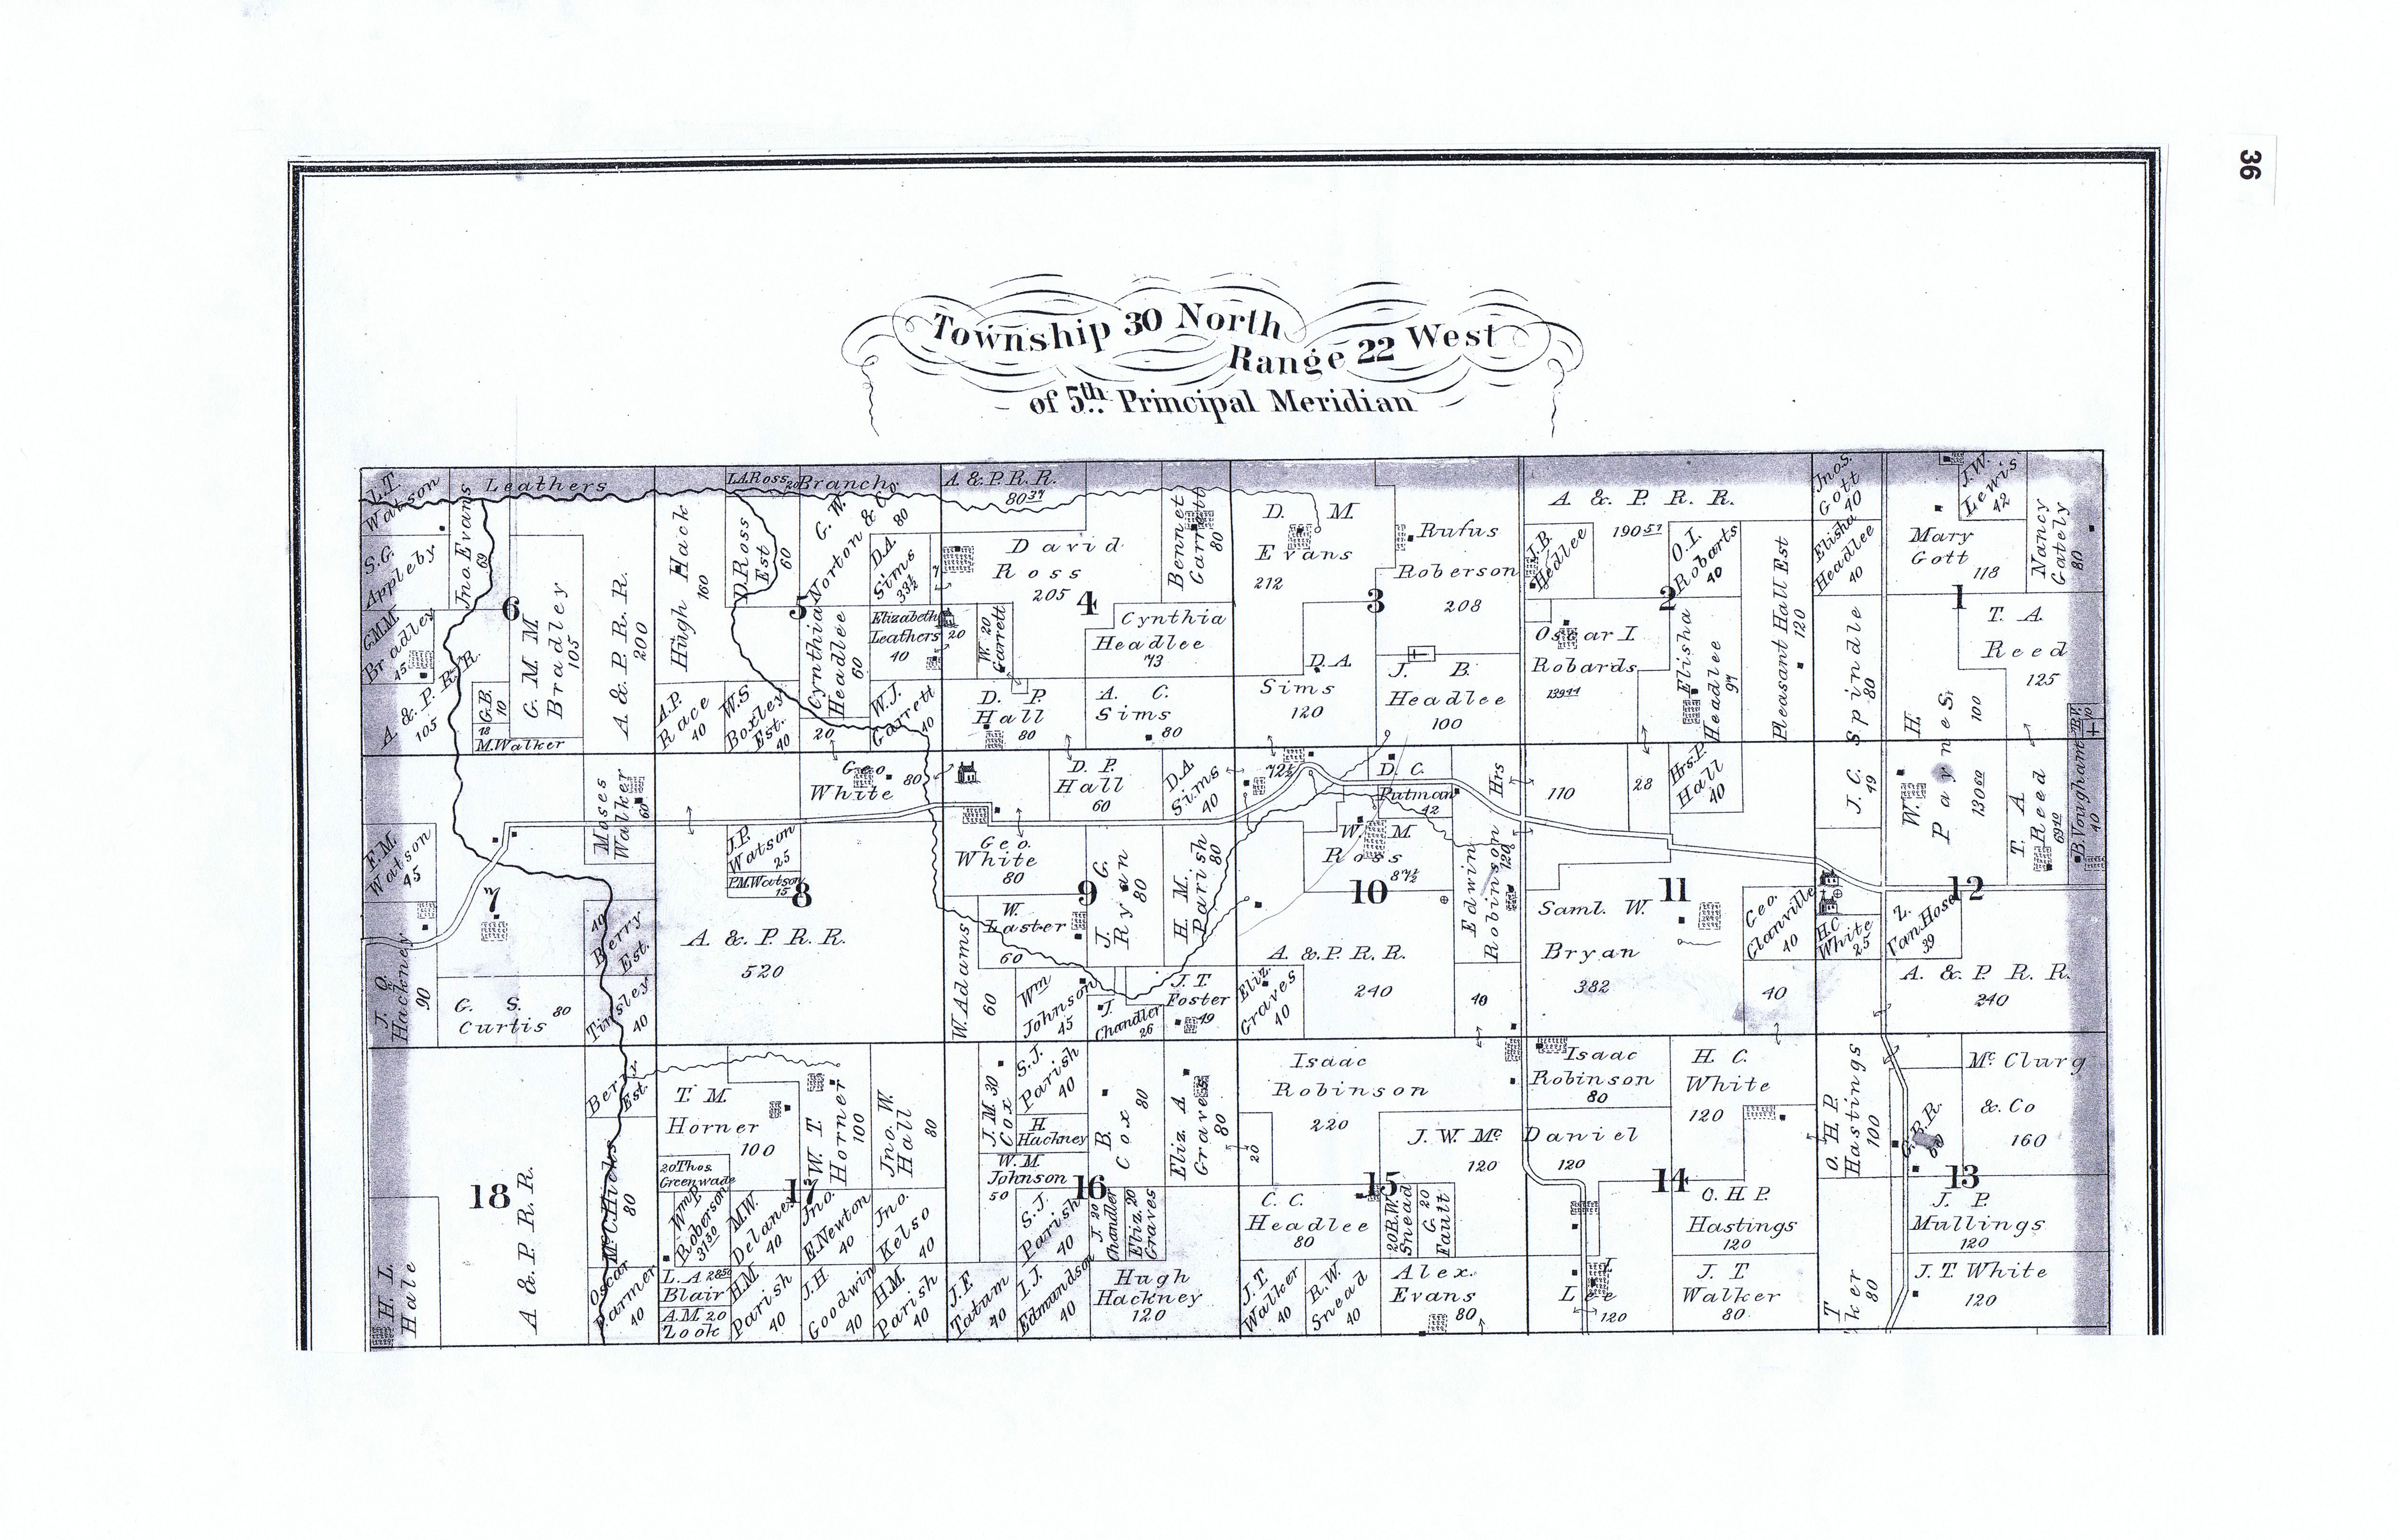 36
Township 30 North
Range 22 West
of 5th Principal Meridian
L.T.
Watson
Leathers
L.A.Ross 20
Branch
A. & P. R. R.
80 37
A. & P. R. R.
190 57
Jno. S.
Gott
40
J.W.
Lewis
42
Nancy
Gately
80
S.G.
Appleby
Jno. Evans
69
G. M. M.
Bradley
105
A & P. R. R.
200
Hugh Hack
160
D. Ross
Est
60
G. W.
Norton & Co.
80
D.A.
Sims
33½
7
David
Ross
205
Bennett
Garrett
80
D. M.
Evans
212
Rufus
Roberson
208
J.B.
Hedlee
O. I.
Robarts
40
Pleasant Hall Est
120
Elisha
Headlee
40
Mary
Gott
118
G.M.M.
Bradley
45
6
5
4
3
2
1
Cynthia
Headlee
60
Elizabeth
Leathers
40
20
W. 20
Garrett
Cynthia
Headlee
73
Oscar I.
Robards
139 44
Elisha
Headlee
97
J. C. Spindle
80
49
T. A.
Reed
125
A. & P. R. R.
105
G.B.
10
18
M. Walker
A.P.
Race
40
W.S
Boxley
Est.
40
20
W. J.
Garrett
40
D. P.
Hall
80
A. C.
Sims
80
D. A.
Sims
120
J. B.
Headlee
100
W. H.
Paynes
100
130 80
Moses
Walker
60
Geo.
White
80
D. P.
Hall
60
D.A.
Sims
40
72½
D. C.
Putman
42
Hrs
110
28
Hrs. P.
Hall
40
T. A
Reed
69 10
B. Vougham
40
F.M.
Watson
45
J.P.
Watson
25
P.M. Watson
15
Geo.
White
80
J. G.
Ryan
80
H. M.
Parish
80
W. M.
Ross
87½
Edwin
Robinson
120
7
8
9
10
11
12
J. O.
Hackney
90
40
Berry
Est.
A. & P. R. R.
520
W.
Laster
60
W. Adams
60
A. & P. R. R.
240
Saml. W.
Bryan
382
Geo.
Glanville
40
H.C.
White
25
Z.
Van Hose
39
A. & P. R. R.
240
G. S.
Curtis
80
Tinsley
40
Wm
Johnson
45
J.
Chandler
26
J. T.
Foster
49
Eliz.
Graves
40
40
40
Berry
Est.
T. M.
Horner
100
W. T
Horner
100
Jno. W.
Hall
80
J. M. 30
Cox
S. J.
Parish
40
H.
Hackney
B.
Cox
80
Eliz. A
Graves
80
Isaac
Robinson
220
Isaac
Robinson
80
H. C.
White
120
O. H. P.
Hastings
100
G. B. R.
60
Mc Clurg
& Co
160
20
J. W. Mc Daniel
120
120
20 Thos.
Greenwade
W. M.
Johnson
50
18
17
16
15
14
13
A & P. R. R.
M.C. Hicks
80
Wm P.
Roberson
31 50
M.W.
Delaney
40
Jno.
E. Newton
40
Jno.
Kelso
40
S. J.
Parish
40
J. 20
Chandler
Eliz. 20
Graves
C. C.
Headlee
80
20 R.W.
Snead
G. 20
Fault
O. H. P.
Hastings
120
J. P.
Mullings
120
H. L.
Hale
Oscar
Parmer
40
L. A 28 50
Blair
A.M 20
Zook
H.M.
Parish
40
J. H.
Goodwin
40
H.M.
Parish
40
J. F.
Tatum
40
I. J.
Edmundson
40
Hugh
Hackney
120
J. T.
Walker
40
R. W.
Snead
40
Alex.
Evans
80
L
Lee
120
J. T
Walker
80
T
ker
80
J. T. White
120